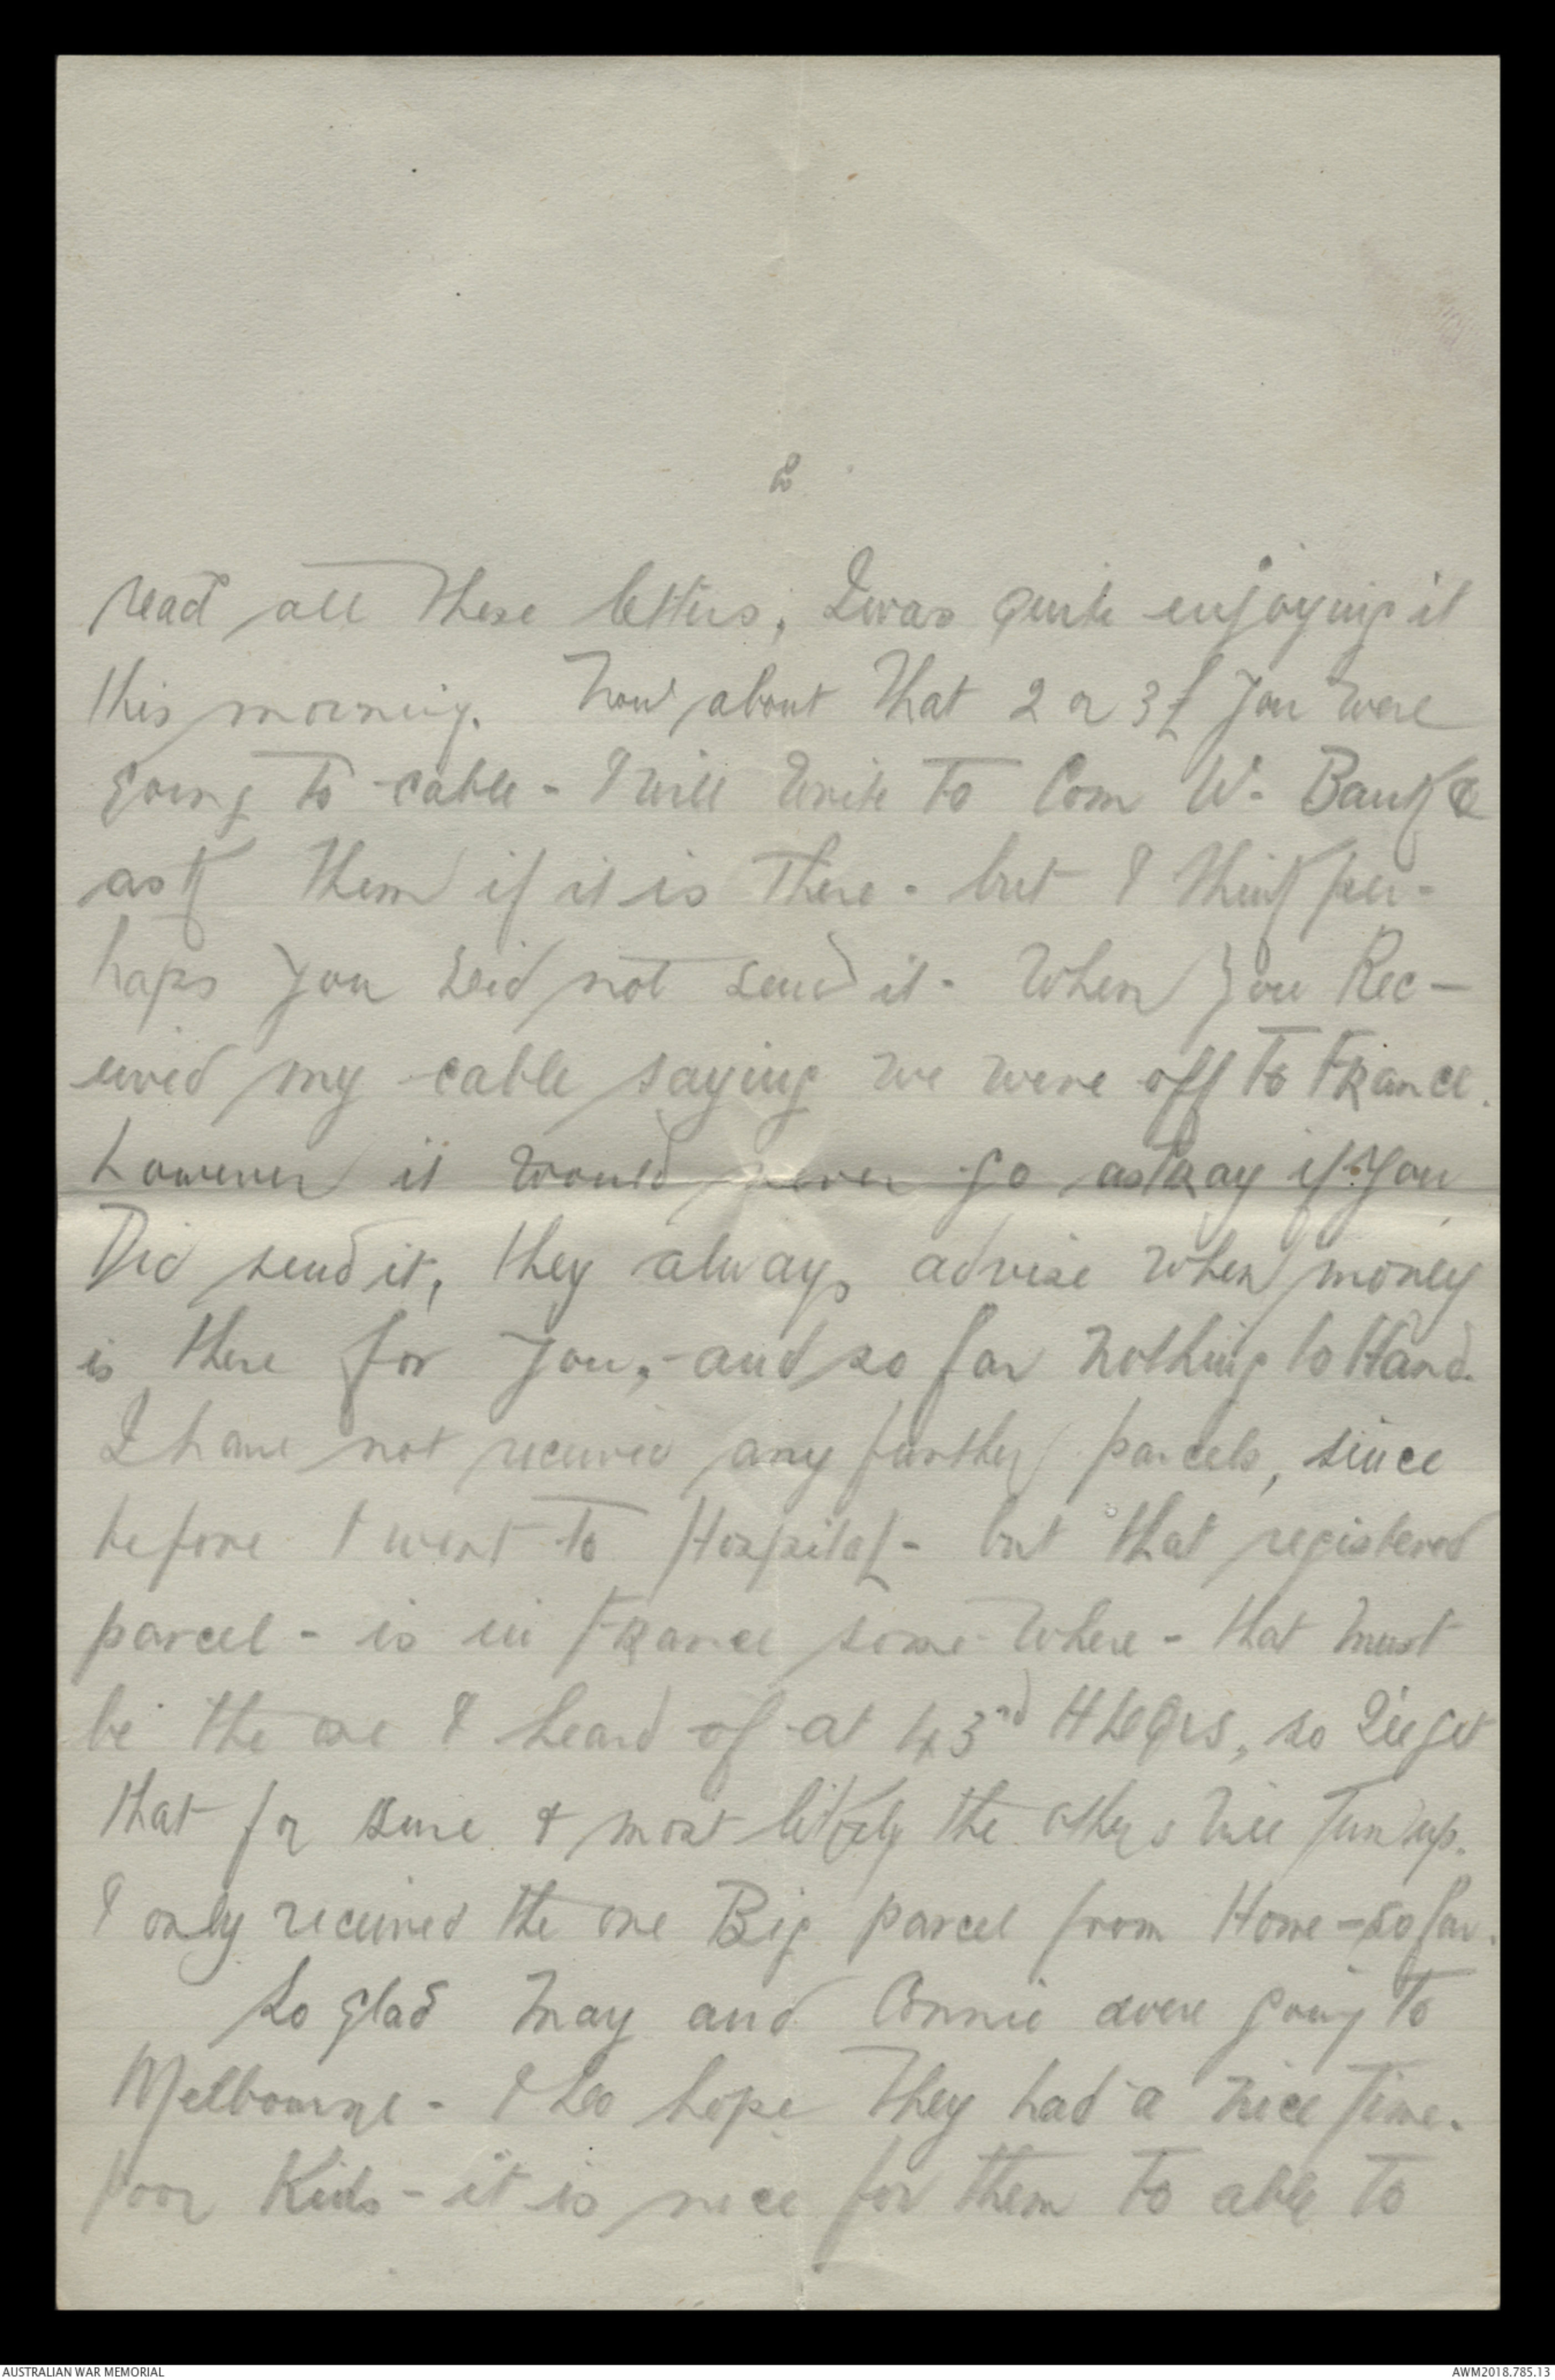 2
read all these letters, I was quite enjoying it
this morning. Now about that 2 or 3£ you were
going to cable - I will write to Com W. Bank &
ask them if it is there - but I think per-
haps you did not send it - when you Rec-
eived my cable saying we were off to France.
however it would never go astray if you
Did send it, they always advise when money
is there for you, - and so far nothing to Hand.
I have not received any further parcels, since
before I went to Hospital - but that registered
parcel - is in France some where - that must
be the one I heard of at 43rd HdQrs, so I'll get
that for sure & most likely the others will turn up.
I only received the one Big parcel from Home - so far.
So glad May and Connie were going to
Melbourne - I do hope they had a nice time.
poor Kids - it is nice for them to able to
AUSTRALIAN WAR MEMORIAL
AWM2018.785.13